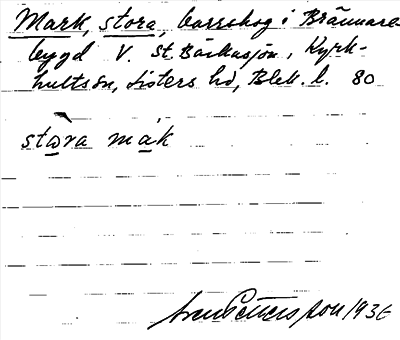 Mark, stora, barrskog i Brännare-
bygd V. St. Bäckasjön, Kyrk-
hults sn, Listers hd, Blek. l. 80
stora mak
Pettersson 1936